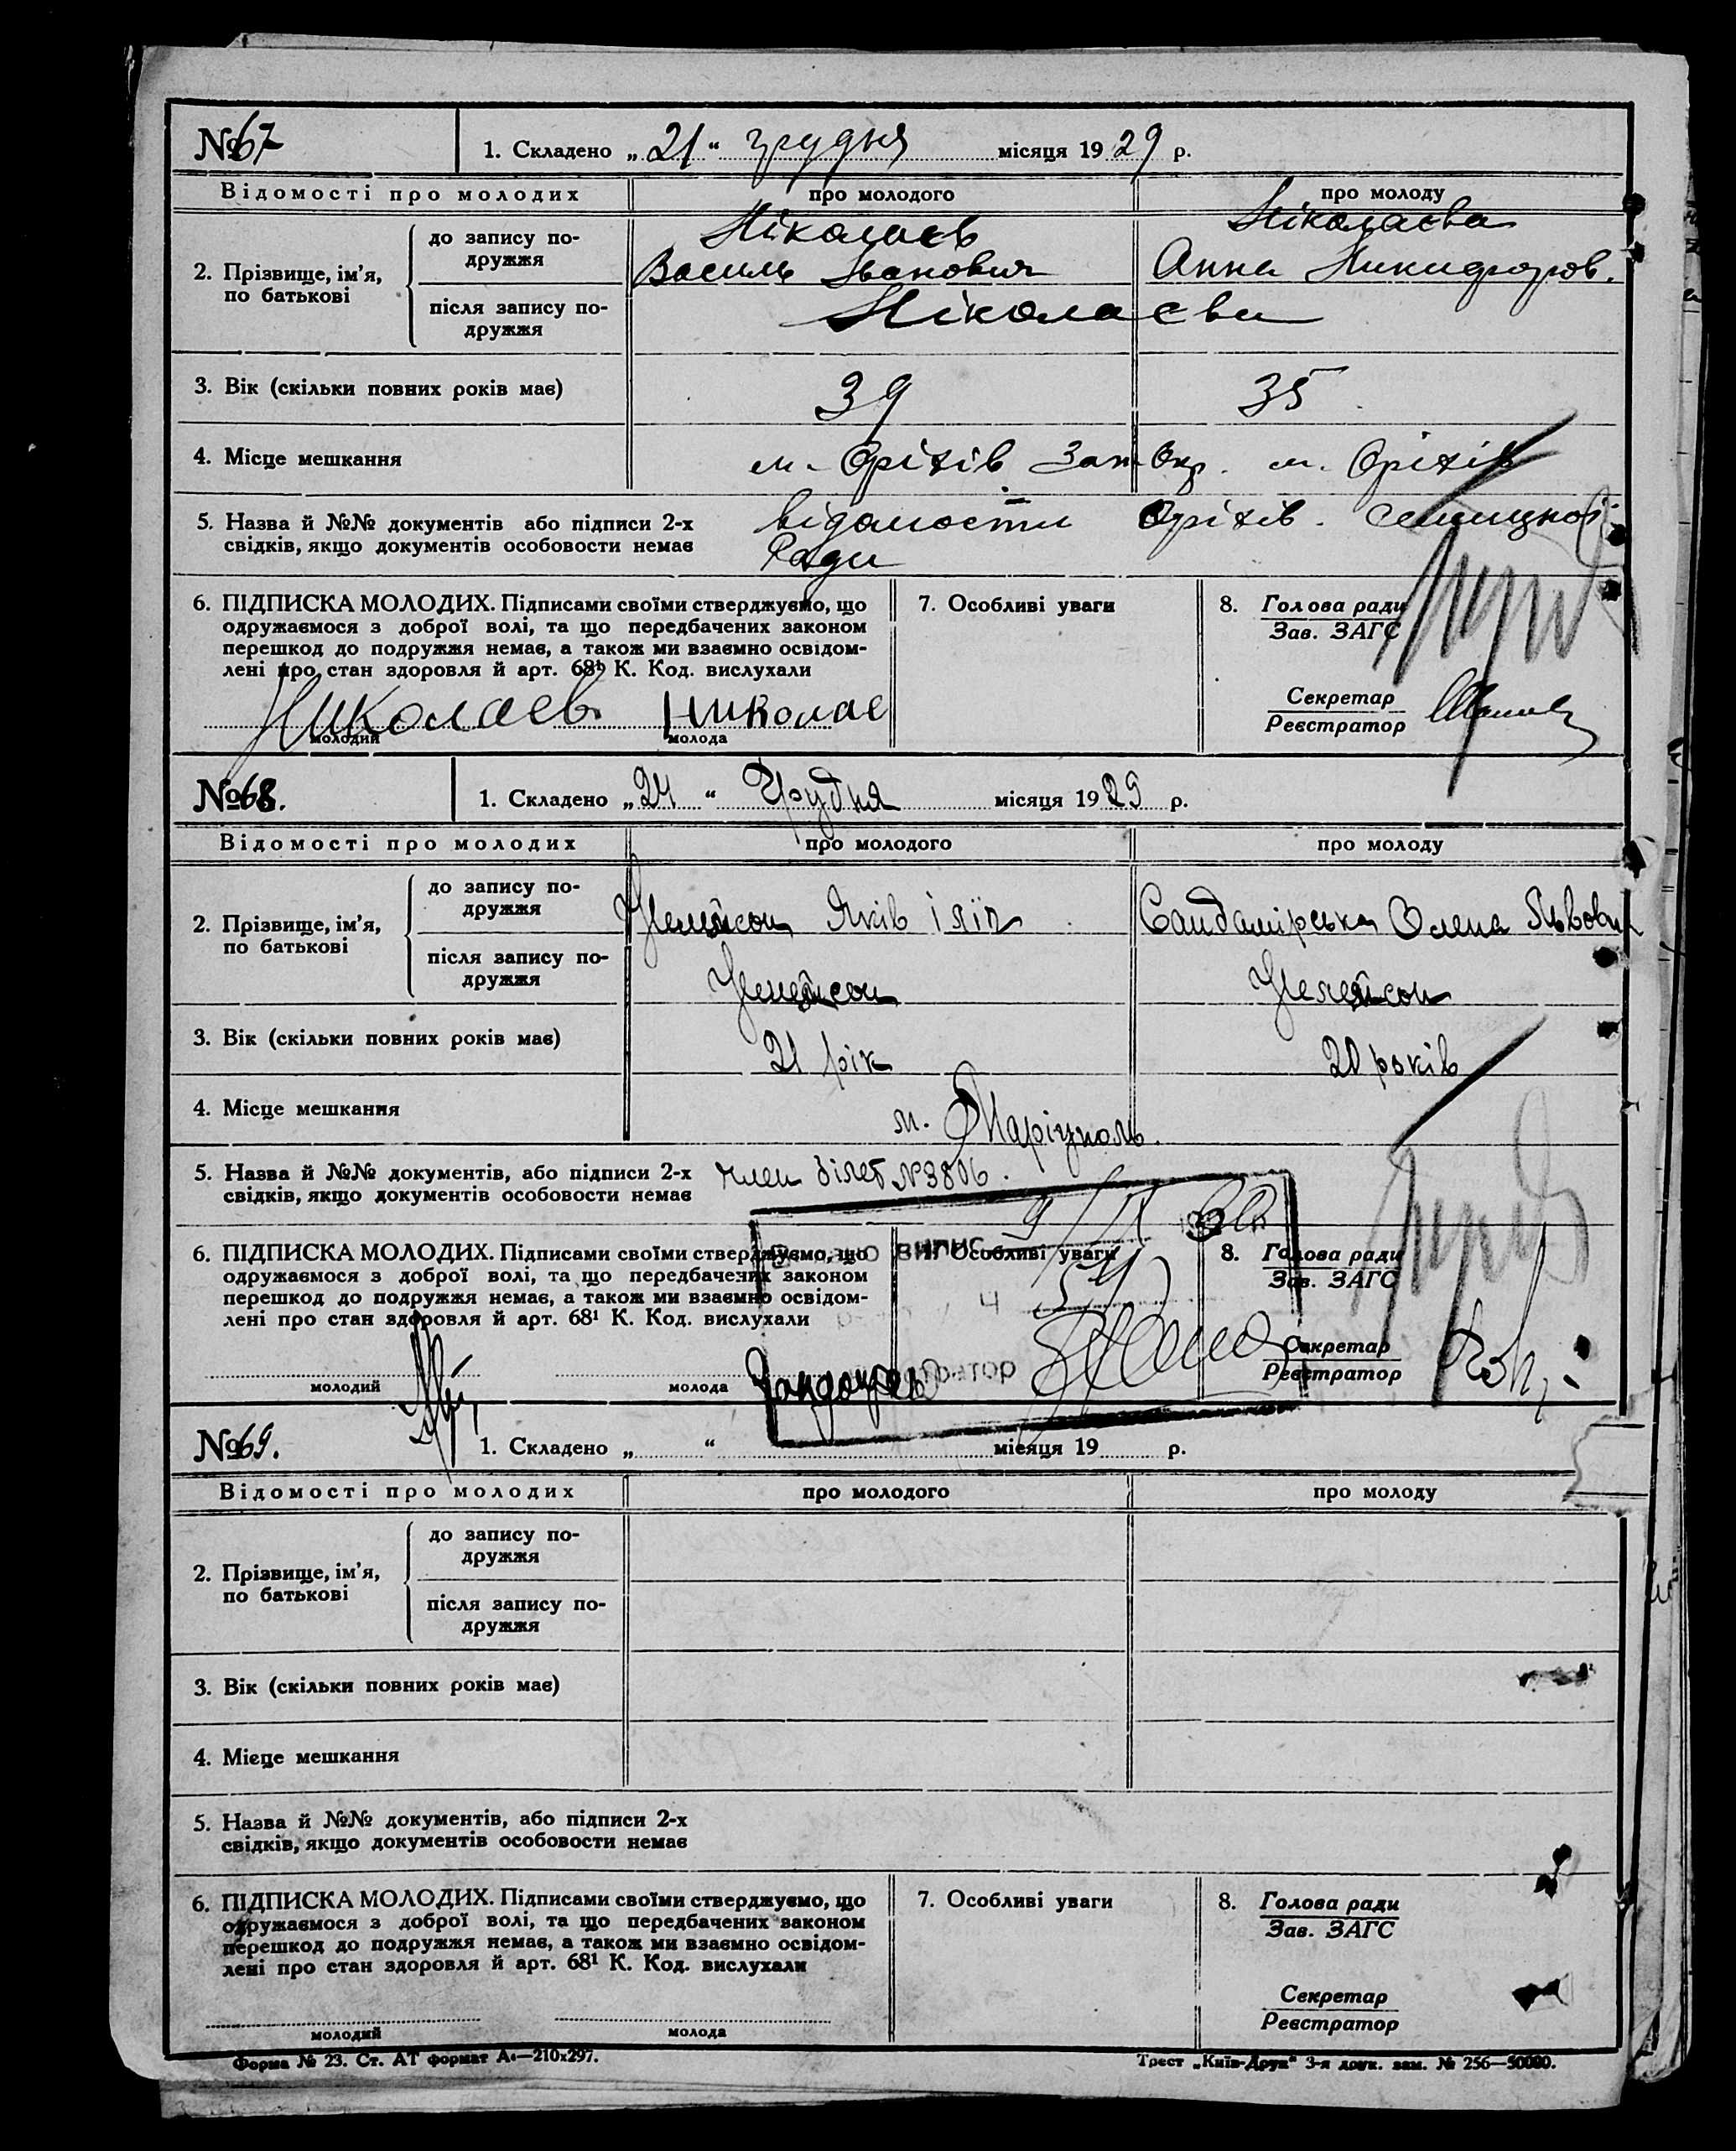 № 67
1. Складено „21“ грудня місяця 1929 р.
Відомості про молодих про молодого про молоду
Ніколаєв Ніколаєва
до запису по-
дружжя
Василь Іванович Анна Никифоров.
2. Прізвище, ім’я,
по батькові
після запису по-
дружжя
Ніколаєви
3. Вік (скільки повних років має) 39 35
4. Місце мешкання м. Оріхів Зап. Окр. м. Оріхів
5. Назва й №№ документів або підписи 2-х
свідків, якщо документів особовости немає
відомости Оріхів. Селищної
Ради
6. ПІДПИСКА МОЛОДИХ. Підписами своїми стверджуємо, що
одружаємося з доброї волі, та що передбачених законом
перешкод до подружжя немає, а також ми взаємно освідом-
лені про стан здоровля й арт. 68¹ К. Код. вислухали
Николаев Николае
молодий молода
7. Особливі уваги
8. Голова ради
Зав. ЗАГС
Секретар
Реєстратор
№ 68.
1. Складено „24“ Грудня місяця 1929 р.
Відомості про молодих про молодого про молоду
до запису по-
дружжя
Яків Сандомірська Олена Львовн
2. Прізвище, ім’я,
по батькові
після запису по-
дружжя
3. Вік (скільки повних років має) 21 рік 20 років
4. Місце мешкання м. Маріуполь.
5. Назва й №№ документів, або підписи 2-х
свідків, якщо документів особовости немає
член білет №3806.
6. ПІДПИСКА МОЛОДИХ. Підписами своїми стверджуємо, що
одружаємося з доброї волі, та що передбачених законом
перешкод до подружжя немає, а також ми взаємно освідом-
лені про стан здоровля й арт. 68¹ К. Код. вислухали
молодий молода
7. Особливі уваги
8. Голова ради
Зав. ЗАГС
Секретар
Реєстратор
№ 69.
1. Складено „ “ місяця 19 р.
Відомості про молодих про молодого про молоду
до запису по-
дружжя
2. Прізвище, ім’я,
по батькові
після запису по-
дружжя
3. Вік (скільки повних років має)
4. Місце мешкання
5. Назва й №№ документів, або підписи 2-х
свідків, якщо документів особовости немає
6. ПІДПИСКА МОЛОДИХ. Підписами своїми стверджуємо, що
одружаємося з доброї волі, та що передбачених законом
перешкод до подружжя немає, а також ми взаємно освідом-
лені про стан здоровля й арт. 68¹ К. Код. вислухали
молодий молода
7. Особливі уваги
8. Голова ради
Зав. ЗАГС
Секретар
Реєстратор
Форма № 23. Ст. АТ формат А₄—210х297.
Трест „Київ-Друк“ 3-я друк. зам. № 256—50000.